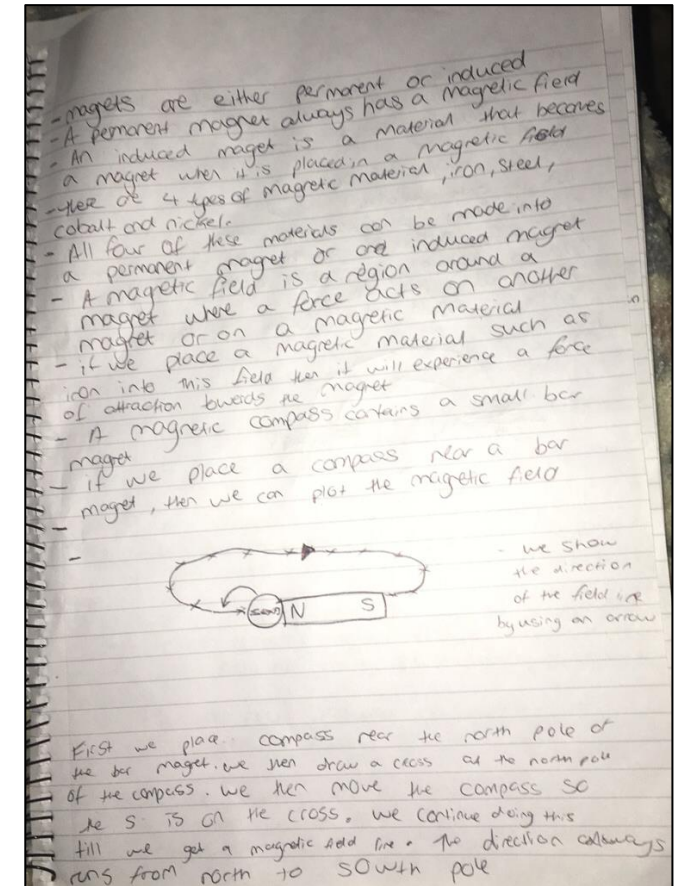 - magets are either permanent or induced
- A pemanent magnet always has a magnetic field
- An induced maget is a material that becomes
a magnet when it is placed in a magnetic field
- there are 4 types of magnetic material, iron, steel,
cobalt and nickel.
- All four of these materials can be made into
a permanent magnet or induced magnet
- A magnetic field is a region around a
magnet where a force acts on another
magnet or on a magnetic material
- if we place a magnetic material such as
iron into this field then it will experience a force
of attraction towards the magnet
- A magnetic compass contains a small bar
maget
- if we place a compass near a bar
- maget, then we can plot the magnetic field
-
- we show
the direction
of the field line
by using an arrow
N S
First we place compass near the north pole of
the bar maget. we then draw a cross at the north pole
of the compass. we then move the compass so
the S is on the cross. we continue doing this
till we get a magnetic field line. The direction always
runs from north to south pole